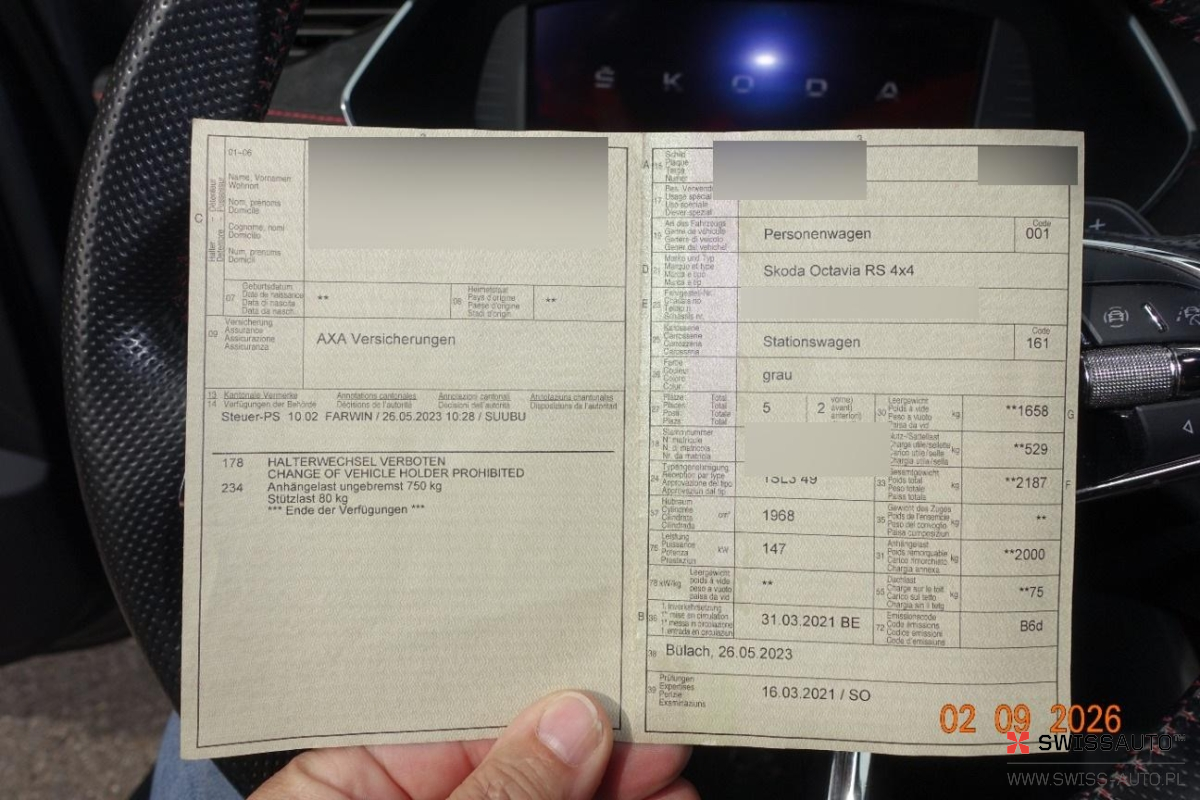 ŠKODA
2
01-06
Name, Vornamen
Wohnort
Nom, prénoms
Domicile
Cognome, nomi
Domicilio
Num, prenoms
Domicil
C
07
Geburtsdatum
Date de naissance
Data di nascita
Data da nasch.
**
08
Heimatstaat
Pays d'origine
Paese d'origine
Stadi d'origin
**
09
Versicherung
Assurance
Assicurazione
Assicuranza
AXA Versicherungen
13 Kantonale Vermerke Annotations cantonales Annotazioni cantonali Annotaziuns chantunalas
14 Verfügungen der Behörde Décisions de l'autorité Decisioni dell'autorità Disposiziuns da l'autoritad
Steuer-PS 10.02 FARWIN / 26.05.2023 10:28 / SUUBU
178 HALTERWECHSEL VERBOTEN
CHANGE OF VEHICLE HOLDER PROHIBITED
234 Anhängelast ungebremst 750 kg
Stützlast 80 kg
*** Ende der Verfügungen ***
3
A 15
Schild
Plaque
Targa
Numer
17
Usage spécial
Uso speciale
Diever spezial
19
Art des Fahrzeugs
Genre de véhicule
Genere di veicolo
Gener dal vehichel
Personenwagen
Code
001
D 21
Marke und Typ
Marque et type
Marca e tipo
Marca e tip
Skoda Octavia RS 4x4
E 23
25
Carrosserie
Carrozzeria
Carossaria
Stationswagen
Code
161
26
Farbe
Couleur
Colore
Colur
grau
27
Plätze Total
Places Total
Posti Totale
Plazs Total
5
2
vorne
avant
anteriori
30
Leergewicht
Poids à vide
Peso a vuoto
Paisa da vid
kg
**1658
G
18
Stammnummer
N° matricule
N. di matricola
Nr. da matricla
kg
**529
24
Typengenehmigung
Réception par type
Approvazione del tipo
Approvaziun dal tip
33
Gesamtgewicht
Poids total
Peso totale
Paisa totala
kg
**2187
F
37
Hubraum
Cylindrée
Cilindrata
Cilindrada
cm³
1968
35
Gewicht des Zuges
Poids de l'ensemble
Peso del convoglio
Paisa cumposiziun
kg
**
76
Leistung
Puissance
Potenza
Prestaziun
kW
147
31
Anhängelast
Poids remorquable
Carico rimorchiato
Chargia annexa
kg
**2000
78 kW/kg
Leergewicht
poids à vide
peso a vuoto
paisa da vid
**
55
Dachlast
Charge sur le toit
Carico sul tetto
Chargia sin il tetg
kg
**75
B 36
1. Inverkehrsetzung
1re mise en circulation
1a messa in circolazione
1. entrada en circulaziun
31.03.2021 BE
72
Emissionscode
Code émissions
Codice emissioni
Code d'emissiuns
B6d
38
Bülach, 26.05.2023
39
Prüfungen
Expertises
Perizie
Examinaziuns
16.03.2021 / SO
02 09 2026
SWISSAUTO
WWW.SWISS-AUTO.PL